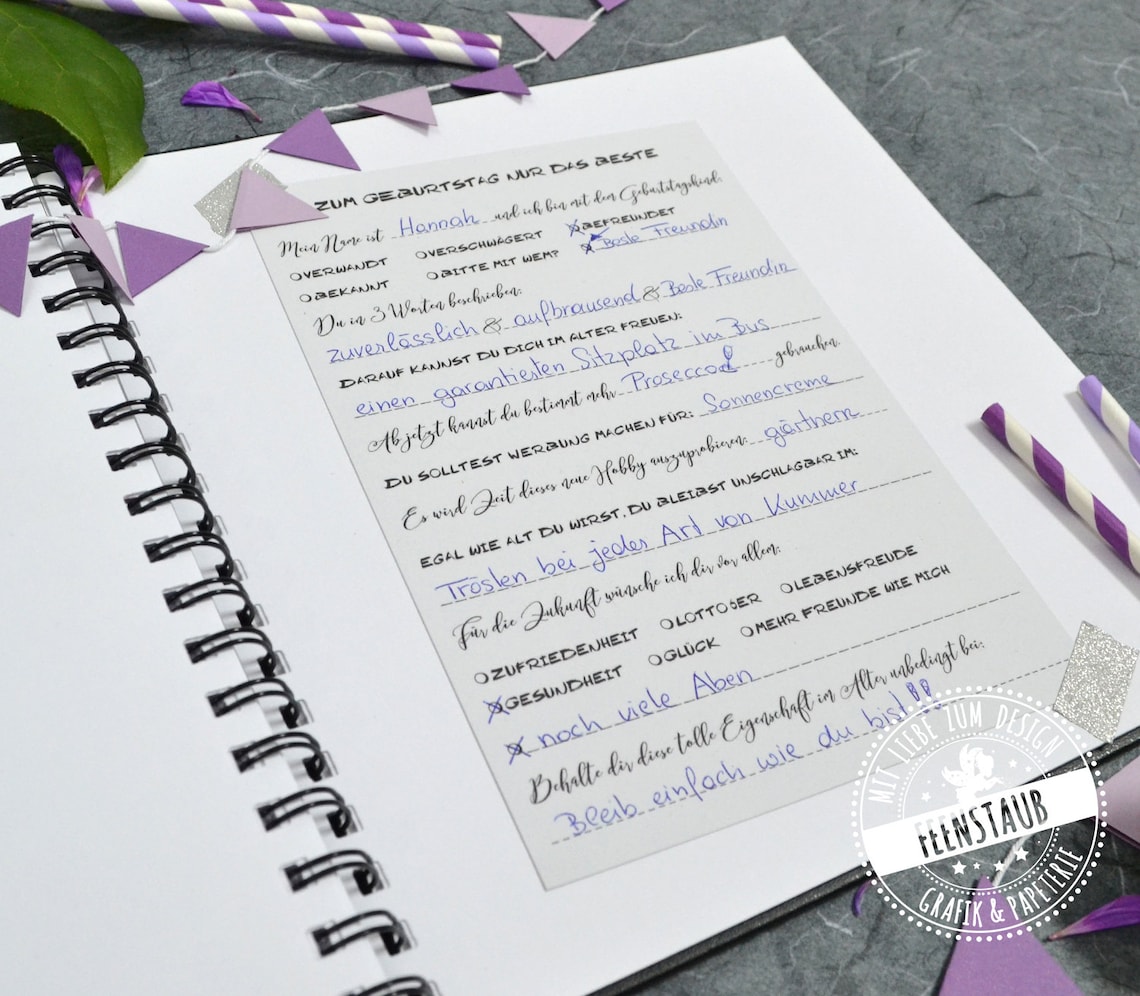 ZUM GEBURTSTAG NUR DAS BESTE
Mein Name ist Hannah und ich bin mit dem Geburtstagskind:
O VERWANDT O VERSCHWÄGERT X BEFREUNDET
O BEKANNT O BITTE MIT WEM? X Beste Freundin
Du in 3 Worten beschrieben:
zuverlässlich & aufbrausend & Beste Freundin
DARAUF KANNST DU DICH IM ALTER FREUEN:
einen garantierten Sitzplatz im Bus
Ab jetzt kannst du bestimmt mehr Prosecco gebrauchen.
DU SOLLTEST WERBUNG MACHEN FÜR: Sonnencreme
Es wird Zeit dieses neue Hobby auszuprobieren: gärtnern
EGAL WIE ALT DU WIRST, DU BLEIBST UNSCHLAGBAR IM:
Trösten bei jedes Art von Kummer
Für die Zukunft wünsche ich dir vor allem:
O ZUFRIEDENHEIT O LOTTO 6ER O LEBENSFREUDE
X GESUNDHEIT O GLÜCK O MEHR FREUNDE WIE MICH
X noch viele Aben
Behalte dir diese tolle Eigenschaft im Alter unbedingt bei:
Bleib einfach wie du bist!!
MIT LIEBE ZUM DESIGN
FEENSTAUB
GRAFIK & PAPETERIE